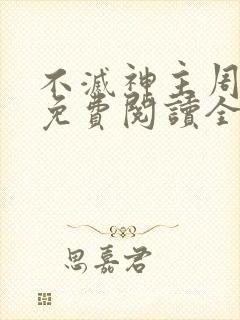 不滅神主周
免費閱讀全
思嘉君